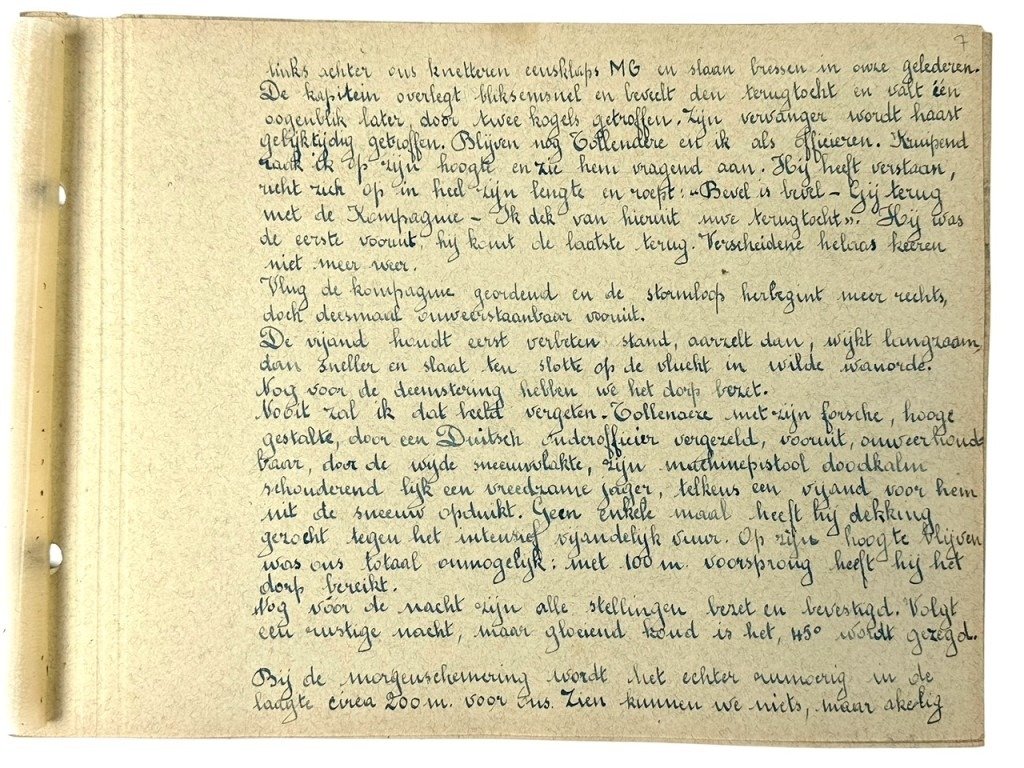 7
links achter ons knetteren eensklaps MG en slaan bressen in onze gelederen.
De kapitein overlegt bliksemsnel en beveelt den terugtocht en valt één
oogenblik later, door twee kogels getroffen. Zijn vervanger wordt haast
gelijktijdig getroffen. Blijven nog Tollenaere en ik als officieren. Kruipend
raak ik op zijn hoogte en zie hem vragend aan. Hij heeft verstaan,
richt zich op in heel zijn lengte en roept: "Bevel is bevel - Gij terug
met de Kompagnie - Ik dek van hieruit uwe terugtocht". Hij was
de eerste vooruit, hij komt de laatste terug. Verscheidene helaas keeren
niet meer weer.
Vlug de kompagnie geordend en de stormloop herbegint meer rechts,
doch deesmaal onweerstaanbaar vooruit.
De vijand houdt eerst verbeten stand, aarzelt dan, wijkt langzaam,
dan sneller en slaat ten slotte op de vlucht in wilde wanorde.
Nog voor de deemstering hebben we het dorp bezet.
Nooit zal ik dat beeld vergeten. Tollenaere met zijn forsche, hooge
gestalte, door een Duitsch onderofficier vergezeld, vooruit, onweerhoud-
baar, door de wijde sneeuwvlakte, zijn machinepistool doodkalm
schouderend lijk een vreedzame jager, telkens een vijand voor hem
uit de sneeuw opduikt. Geen enkele maal heeft hij dekking
gezocht tegen het intensief vijandelijk vuur. Op zijn hoogte blijven
was ons totaal onmogelijk: met 100 m. voorsprong heeft hij het
dorp bereikt.
Nog vóór de nacht zijn alle stellingen bezet en bevestigd. Volgt
een rustige nacht, maar gloeiend koud is het, 45° wordt gezegd.
Bij de morgenschemering wordt het echter rumoerig in de
laagte circa 200 m. voor ons. Zien kunnen we niets, maar akelig